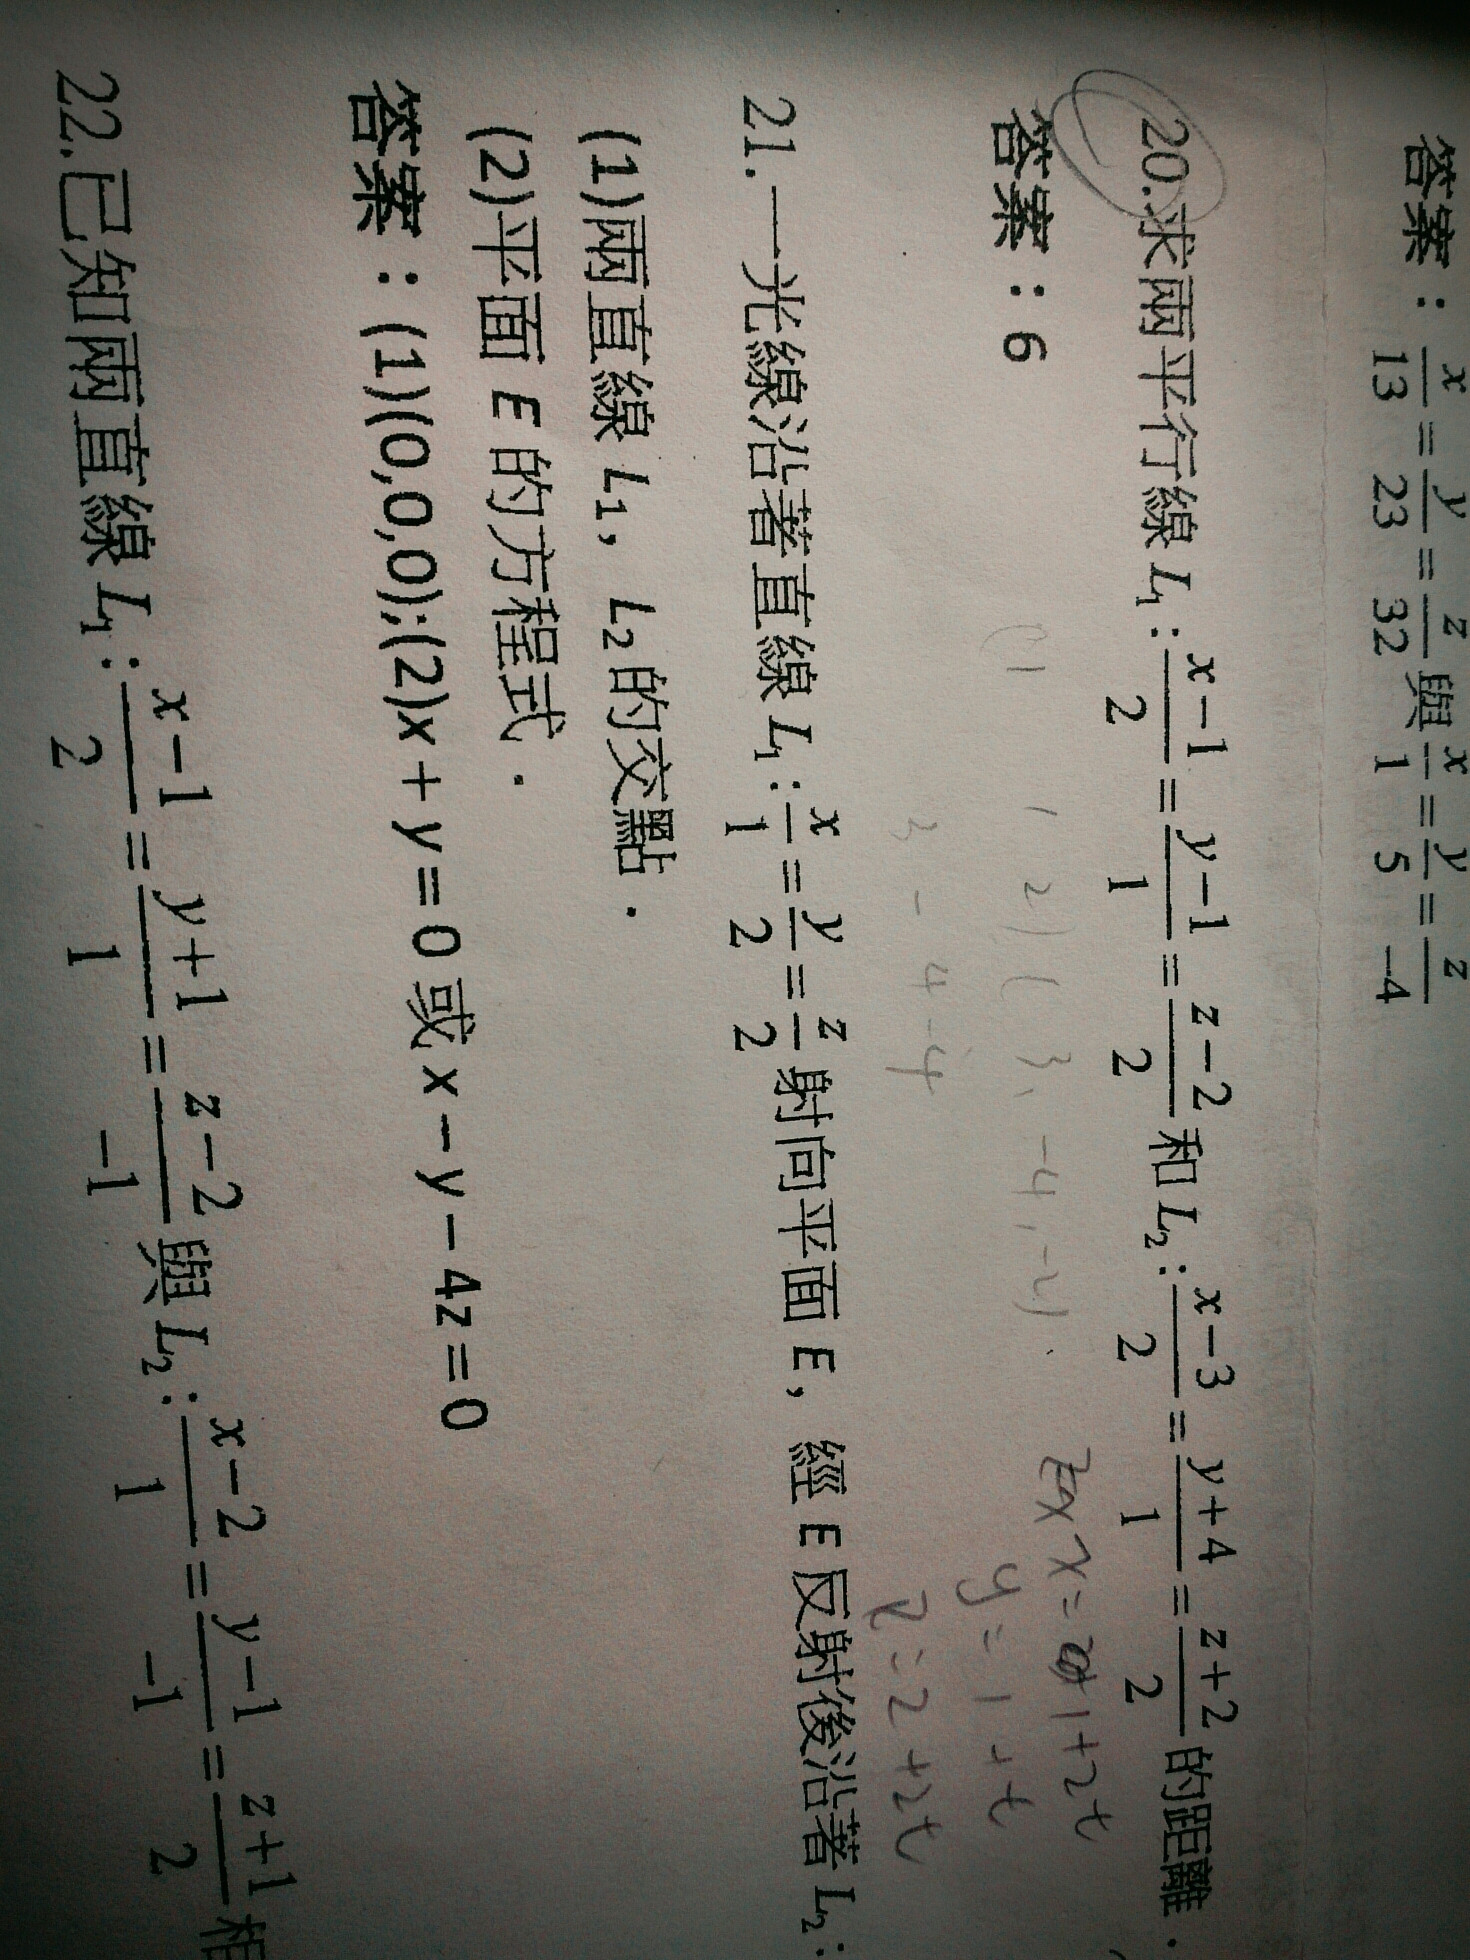 答案：x/13=y/23=z/32與x/1=y/5=z/-4
20.求兩平行線 L₁:(x-1)/2=(y-1)/1=(z-2)/2和L₂:(x-3)/2=(y+4)/1=(z+2)/2的距離．
答案：6
(1 1 2) (3, -4, -2)
x=1+2t
y=1+t
z=2+2t
21.一光線沿著直線 L₁:x/1=y/2=z/2射向平面 E, 經 E 反射後沿著 L₂:
(1)兩直線 L₁, L₂的交點．
(2)平面 E 的方程式．
答案：(1)(0,0,0);(2)x+y=0 或 x-y-4z=0
22.已知兩直線 L₁:(x-1)/2=(y+1)/1=(z-2)/-1與L₂:(x-2)/1=(y-1)/-1=(z+1)/2相